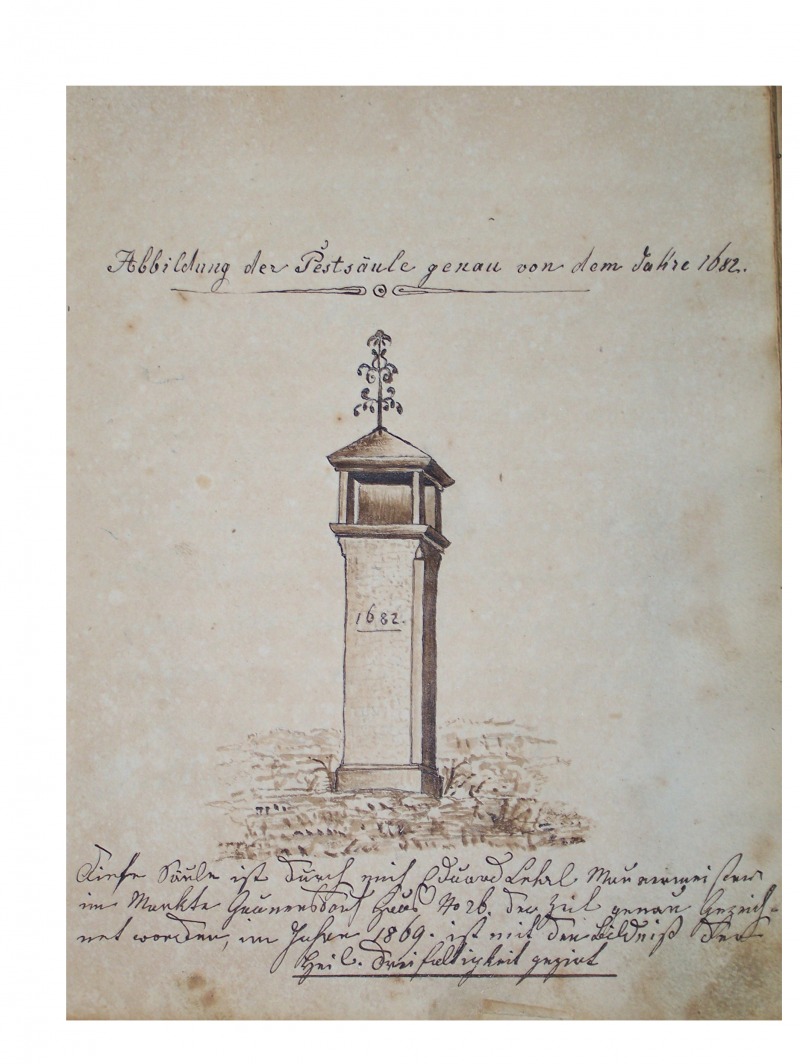 Abbildung der Pestsäule genau von dem Jahre 1682.
1682.
Diese Säule ist durch mich Eduard Lehrl Maurermeister
im Markte Gaunersdorf Haus No 26. der Zeit genau Gezeich-
net worden, im Jahre 1869. ist mit der Bildniß der
Heil. Dreifaltigkeit geziert